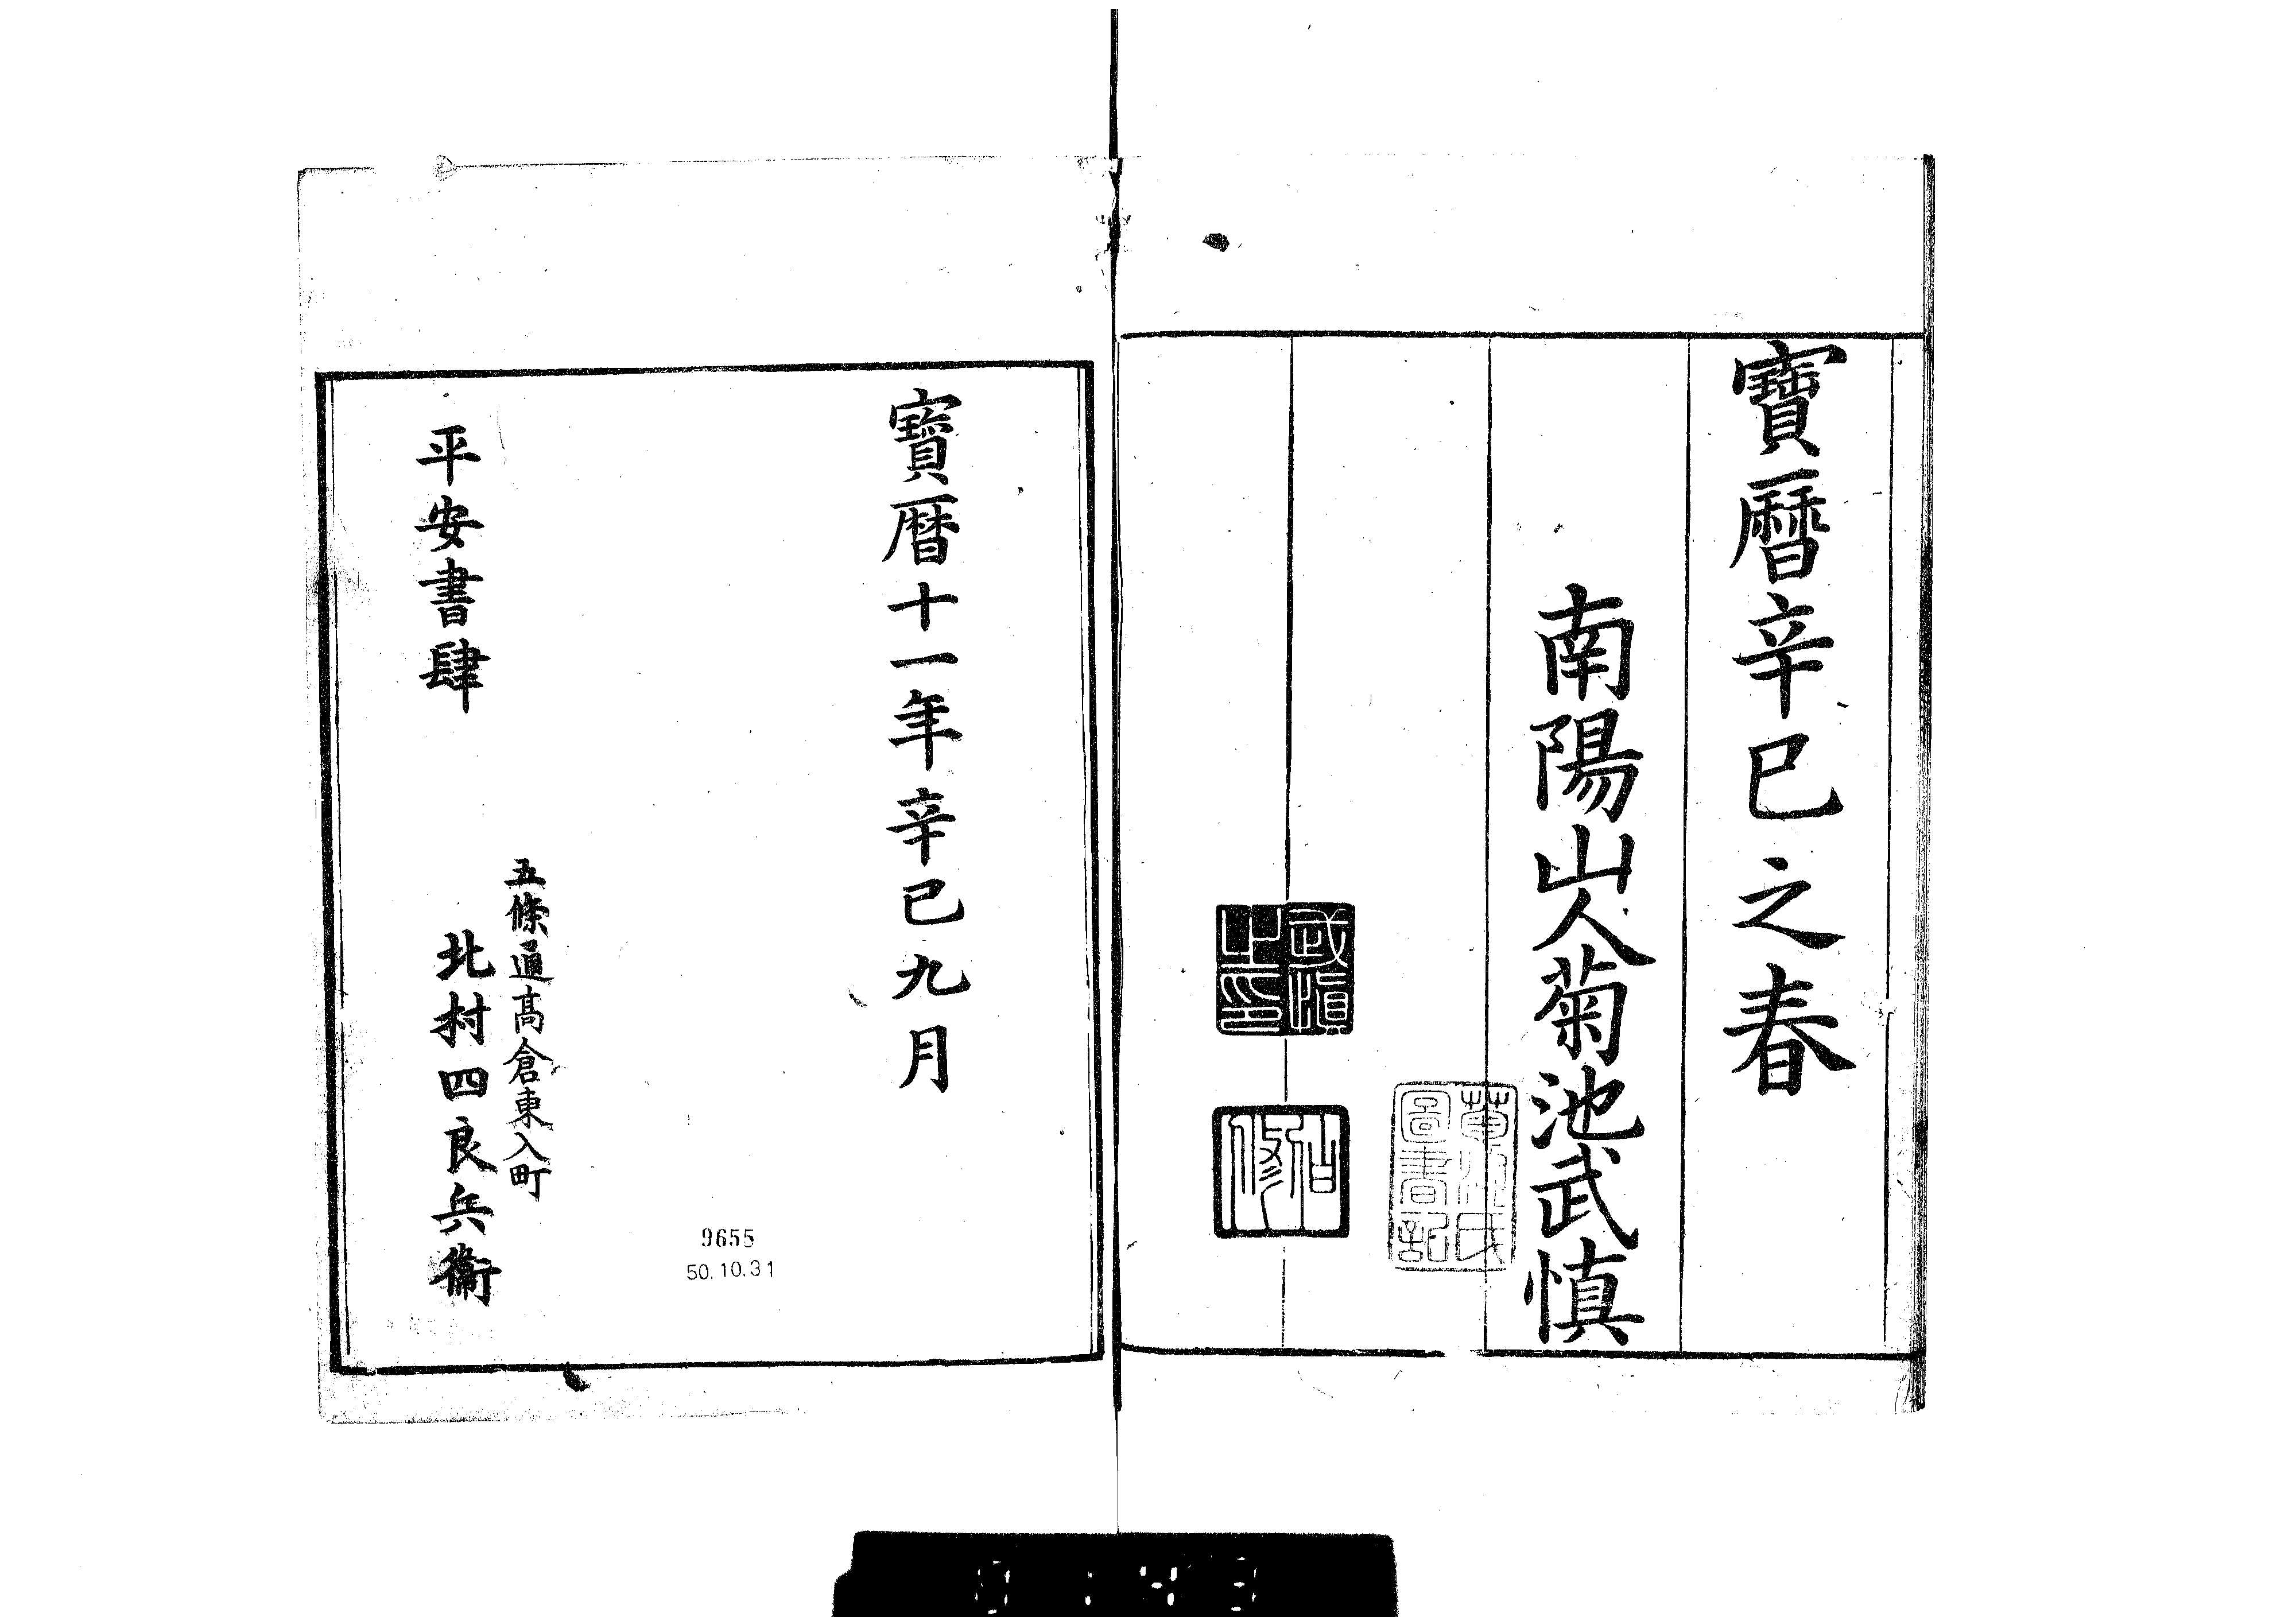 寶曆辛巳之春
南陽山人菊池武慎
武慎之印
伯修
圖書記
寶暦十一年辛巳九月
平安書肆
五條通髙倉東入町
北村四良兵衞
9655
50.10.31